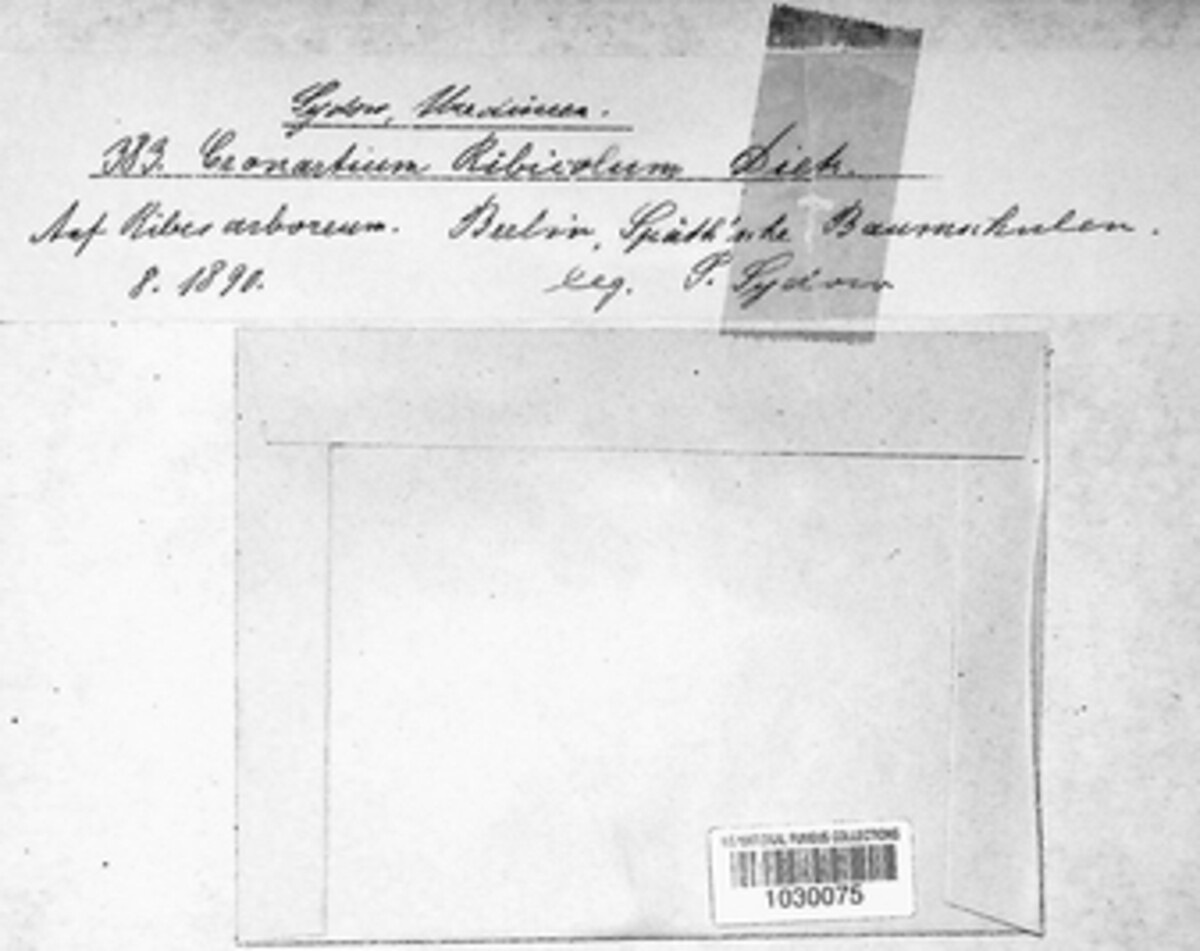 Sydow, Uredineen.
383. Cronartium Ribicolum Diet.
Auf Ribes arboreum. Berlin, Späth'sche Baumschulen.
8. 1890. leg. P. Sydow
U.S. NATIONAL FUNGUS COLLECTIONS
1030075